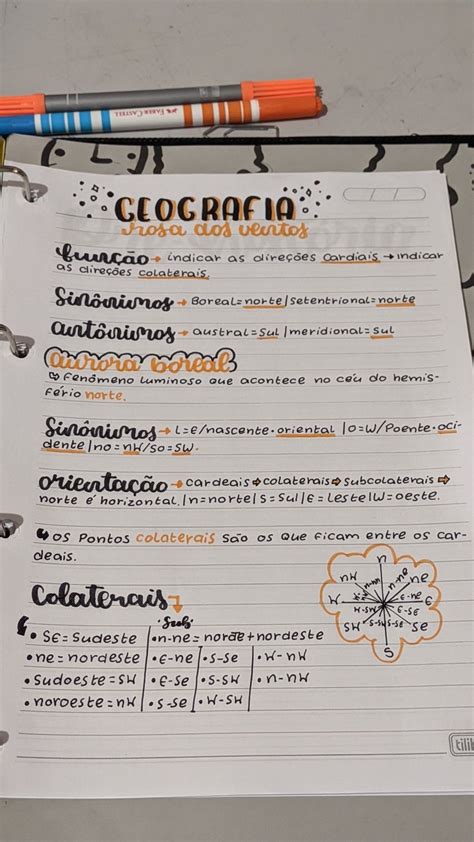 FABER-CASTELL
GEOGRAFIA
rosa dos ventos
função → indicar as direções cardiais → indicar
as direções colaterais.
Sinônimos → Boreal=norte/setentrional=norte
antônimos → austral=sul/meridional=sul
aurora boreal
↪ Fenômeno luminoso que acontece no céu do hemis-
fério norte.
Sinônimos → L=E/nascente·oriental/O=W/Poente·oci-
dente/no=nW/so=SW.
orientação → cardeais → colaterais → subcolaterais →
norte é horizontal. |n=norte|S=Sul|E=Leste|W=oeste.
↪ os Pontos colaterais são os que ficam entre os car-
deais.
Colaterais
• Se=Sudeste
• ne=nordeste
• Sudoeste=SW
• noroeste=nW
• n-ne=norte+nordeste
• E-ne
• E-se
• S-se
• S-SE
• S-SW
• W-SW
• W-nW
• n-nW
n
n-ne
ne
E-ne
E
E-SE
Se
S-SE
S
S-SW
SW
W-SW
W
nW
tili